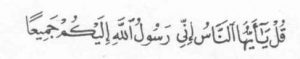 قُلْ يَٰٓأَيُّهَا ٱلنَّاسُ إِنِّى رَسُولُ ٱللَّهِ إِلَيْكُمْ جَمِيعًا